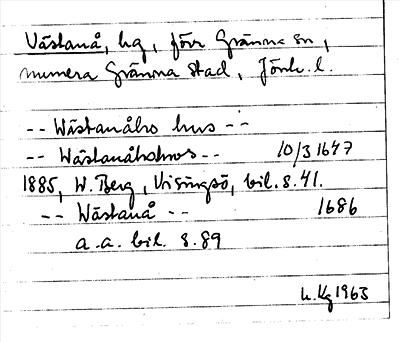 Västanå, hg, förr Gränna sn,
numera Gränna stad, Jönk. l.
-- Wästanåho hus --
-- Wästanåhohws -- 10/3 1647
1885, W. Berg, Visingsö, bil. s. 41.
-- Wästanå -- 1686
a. a. bil. s. 89
1963